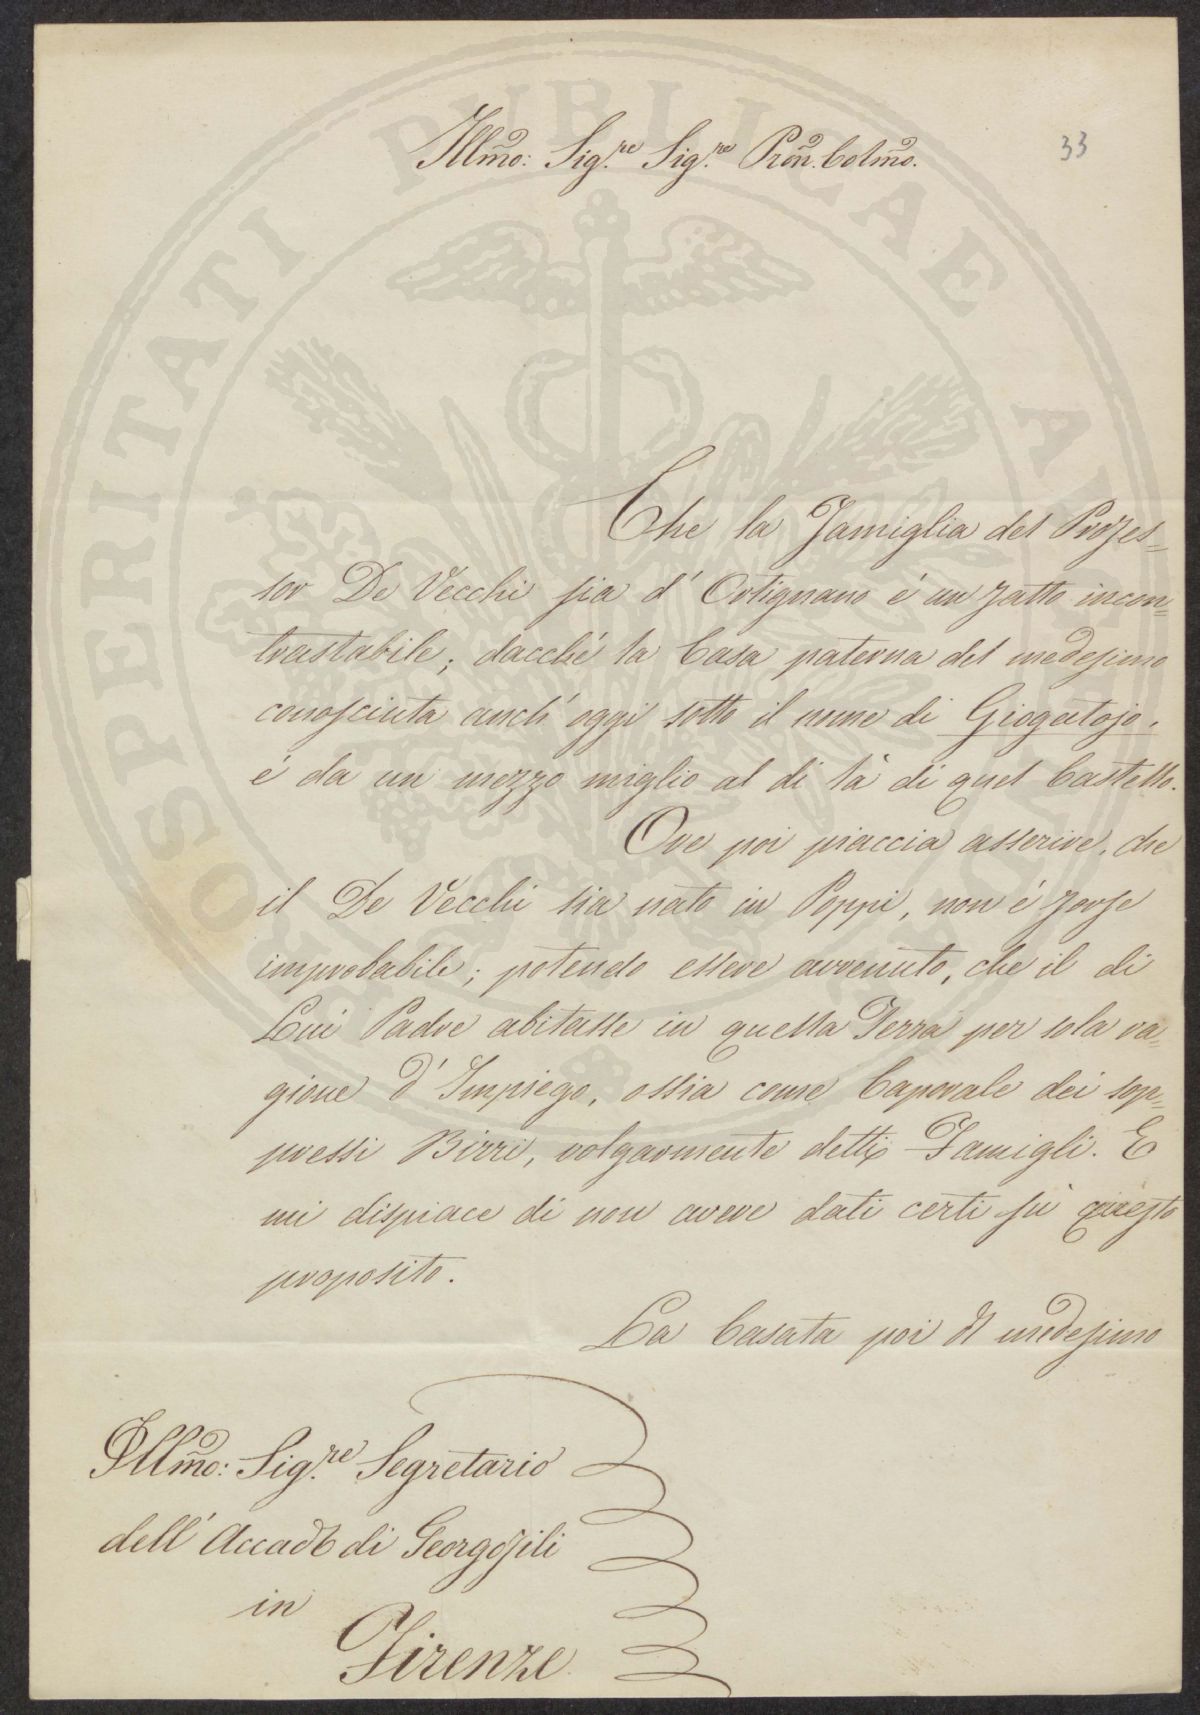 33
Illmo: Sig.re Sig.re Pron. Colmo.
Che la Famiglia del Profes=
sor De Vecchi sia d' Ortignano é un fatto incon=
trastabile; dacché la Casa paterna del medesimo
conosciuta anch' oggi sotto il nome di Giogatojo,
é da un mezzo miglio al di là di quel Castello.
Ove poi piaccia asserire, che
il De Vecchi sia nato in Poppi, non é forse
improbabile; potendo essere avvenuto, che il di
Lui Padre abitasse in quella Terra per sola ra=
gione d' Impiego, ossia come Caporale dei sop=
pressi Birri, volgarmente detti Famigli. E
mi dispiace di non avere dati certi sù questo
proposito.
La Casata poi del medesimo
Illmo: Sig.re Segretario
dell' Accad. di Georgofili
in
Firenze
PROSPERITATI PUBLICAE AUGENDAE